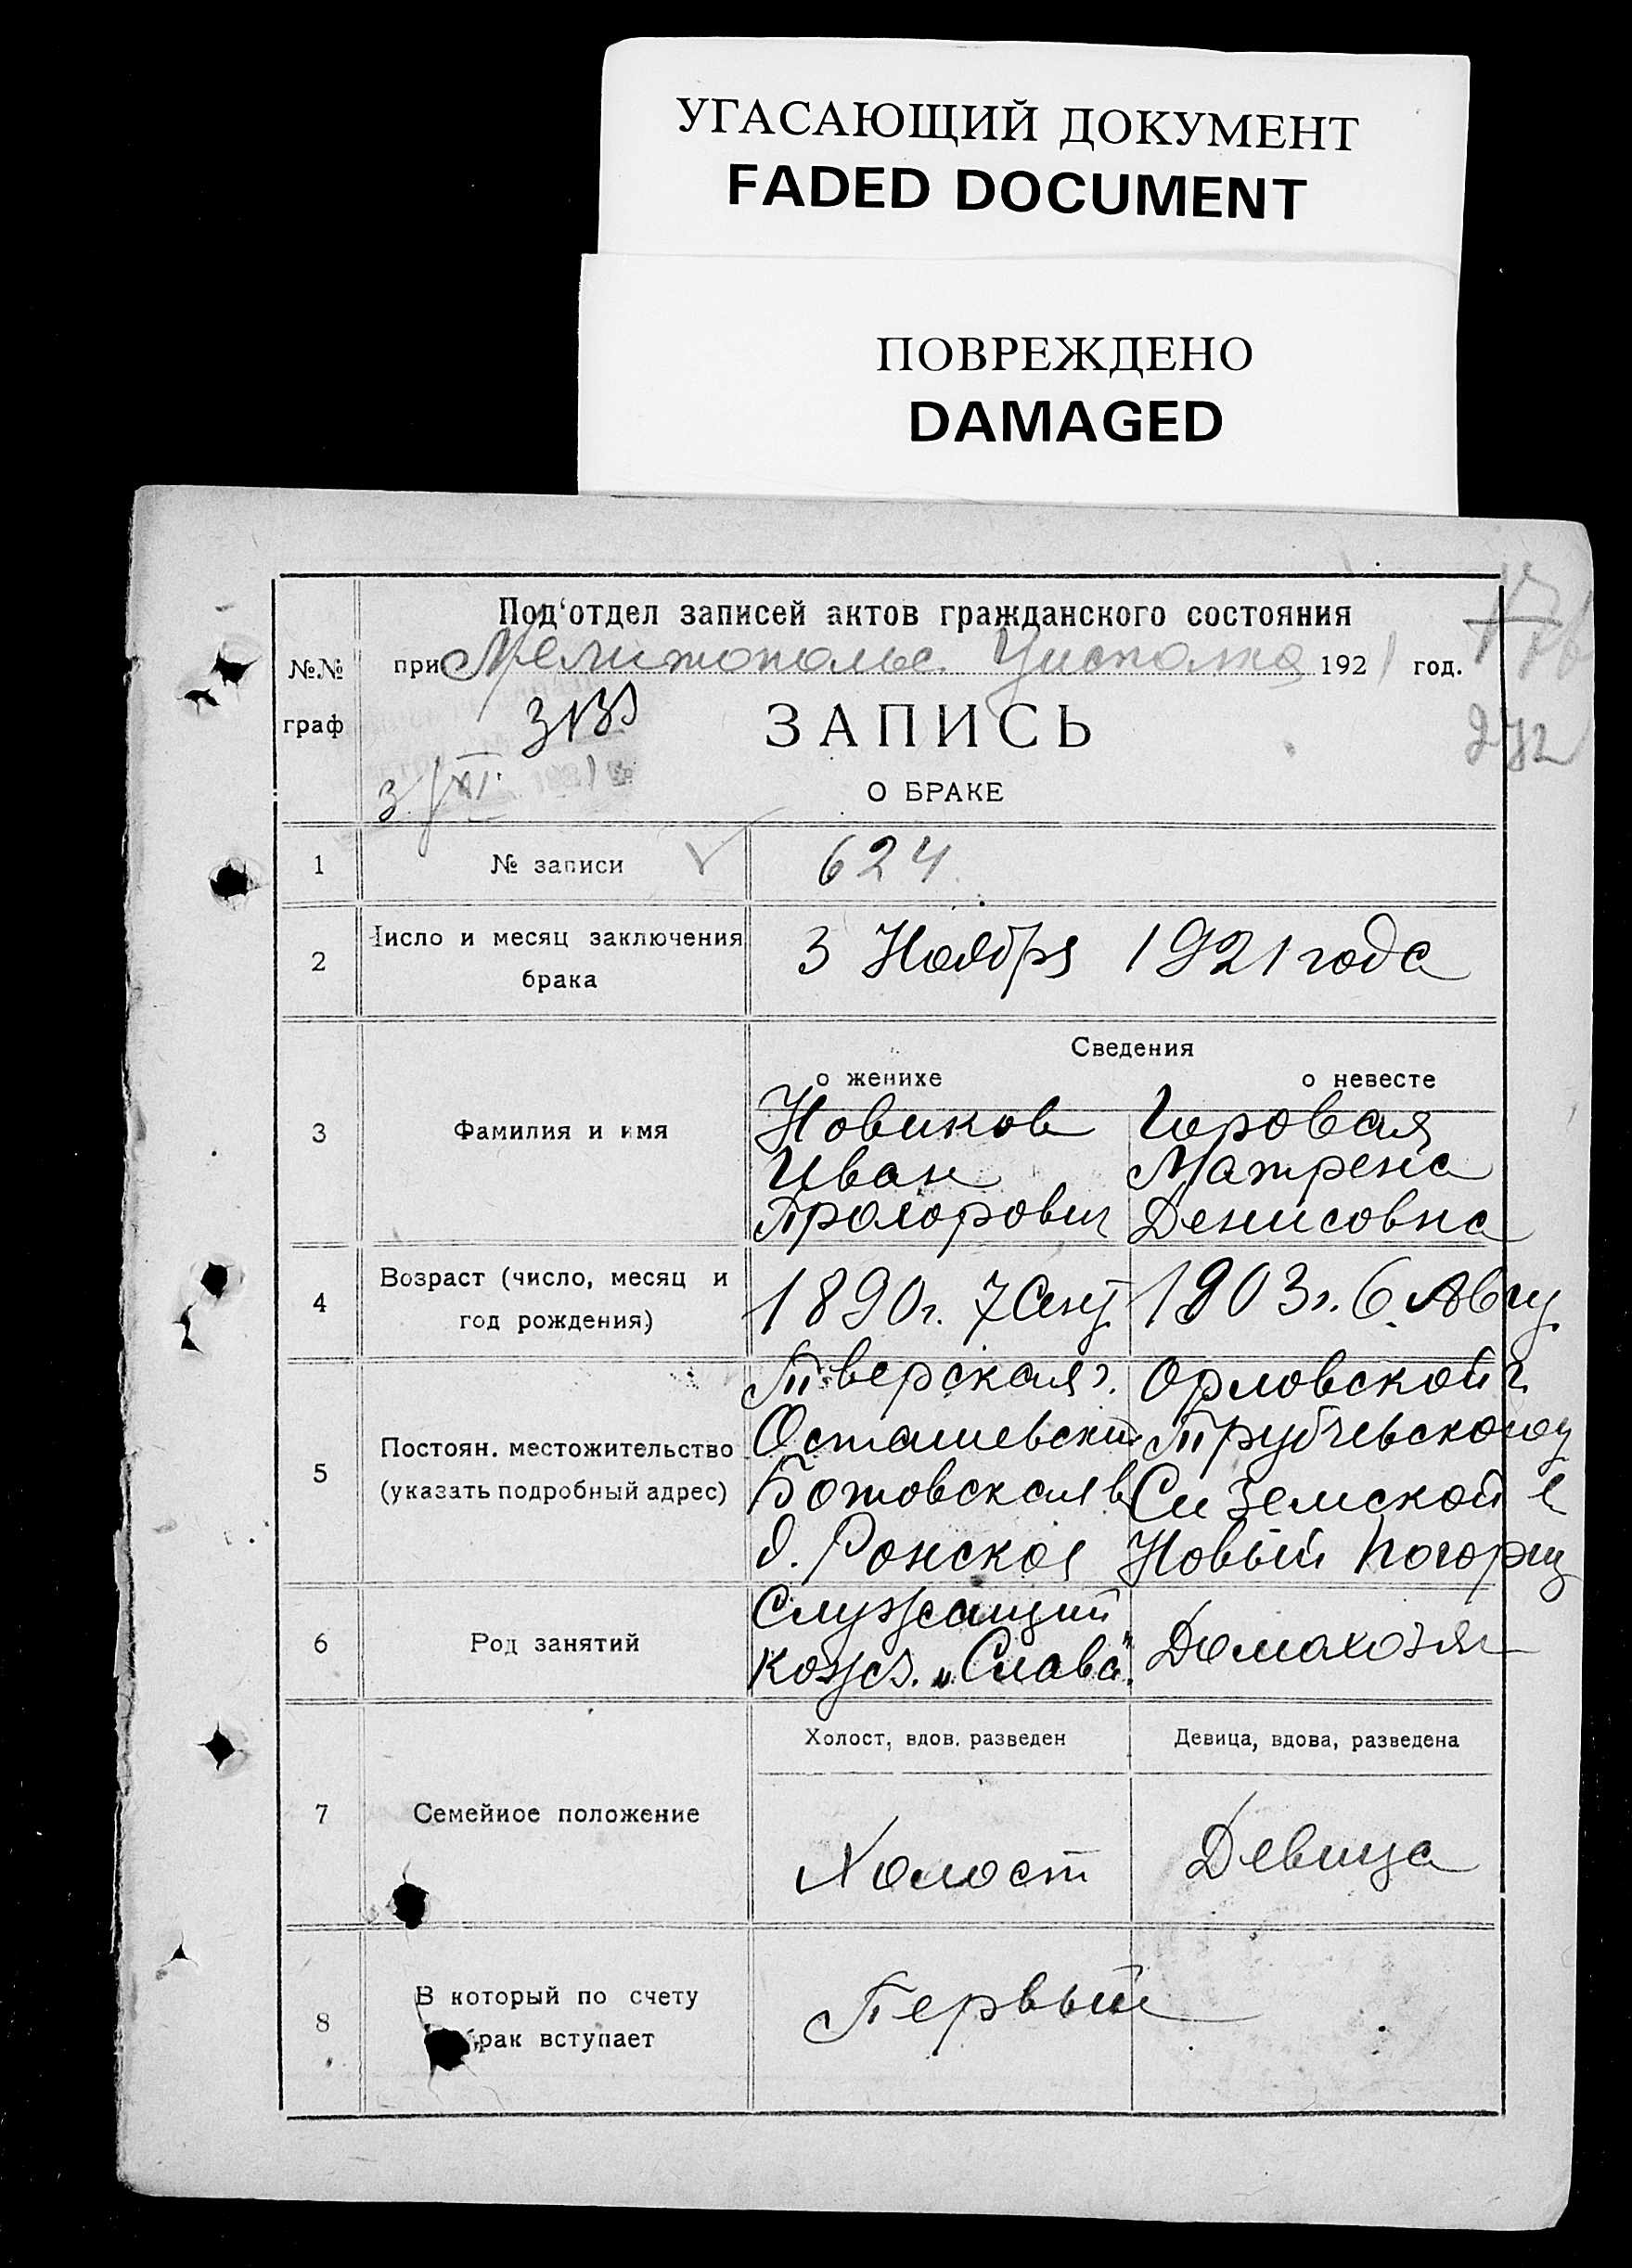 УГАСАЮЩИЙ ДОКУМЕНТ
FADED DOCUMENT
ПОВРЕЖДЕНО
DAMAGED
Под'отдел записей актов гражданского состояния
№№ граф
при Мелитопольс. Уисполкома 1921 год.
272
ЗАПИСЬ
3/XI 1921
О БРАКЕ
1 № записи 624
2 Число и месяц заключения брака 3 Ноября 1921 года
Сведения
о женихе о невесте
3 Фамилия и имя
Новиков Горовая
Иван Матрена
Прохорович Денисовна
4 Возраст (число, месяц и год рождения) 1890г. 7 Сент 1903г. 6 Авгу
5 Постоян. местожительство (указать подробный адрес)
Тверская г. Орловской г.
Осташевский Трубчевского у
Ботовская в
д. Ронское Новый Погорищ
6 Род занятий
Служащий
кожз. „Слава". Домахозяй
7 Семейное положение
Холост, вдов. разведен Девица, вдова, разведена
Холост Девица
8 В который по счету
брак вступает
Первый